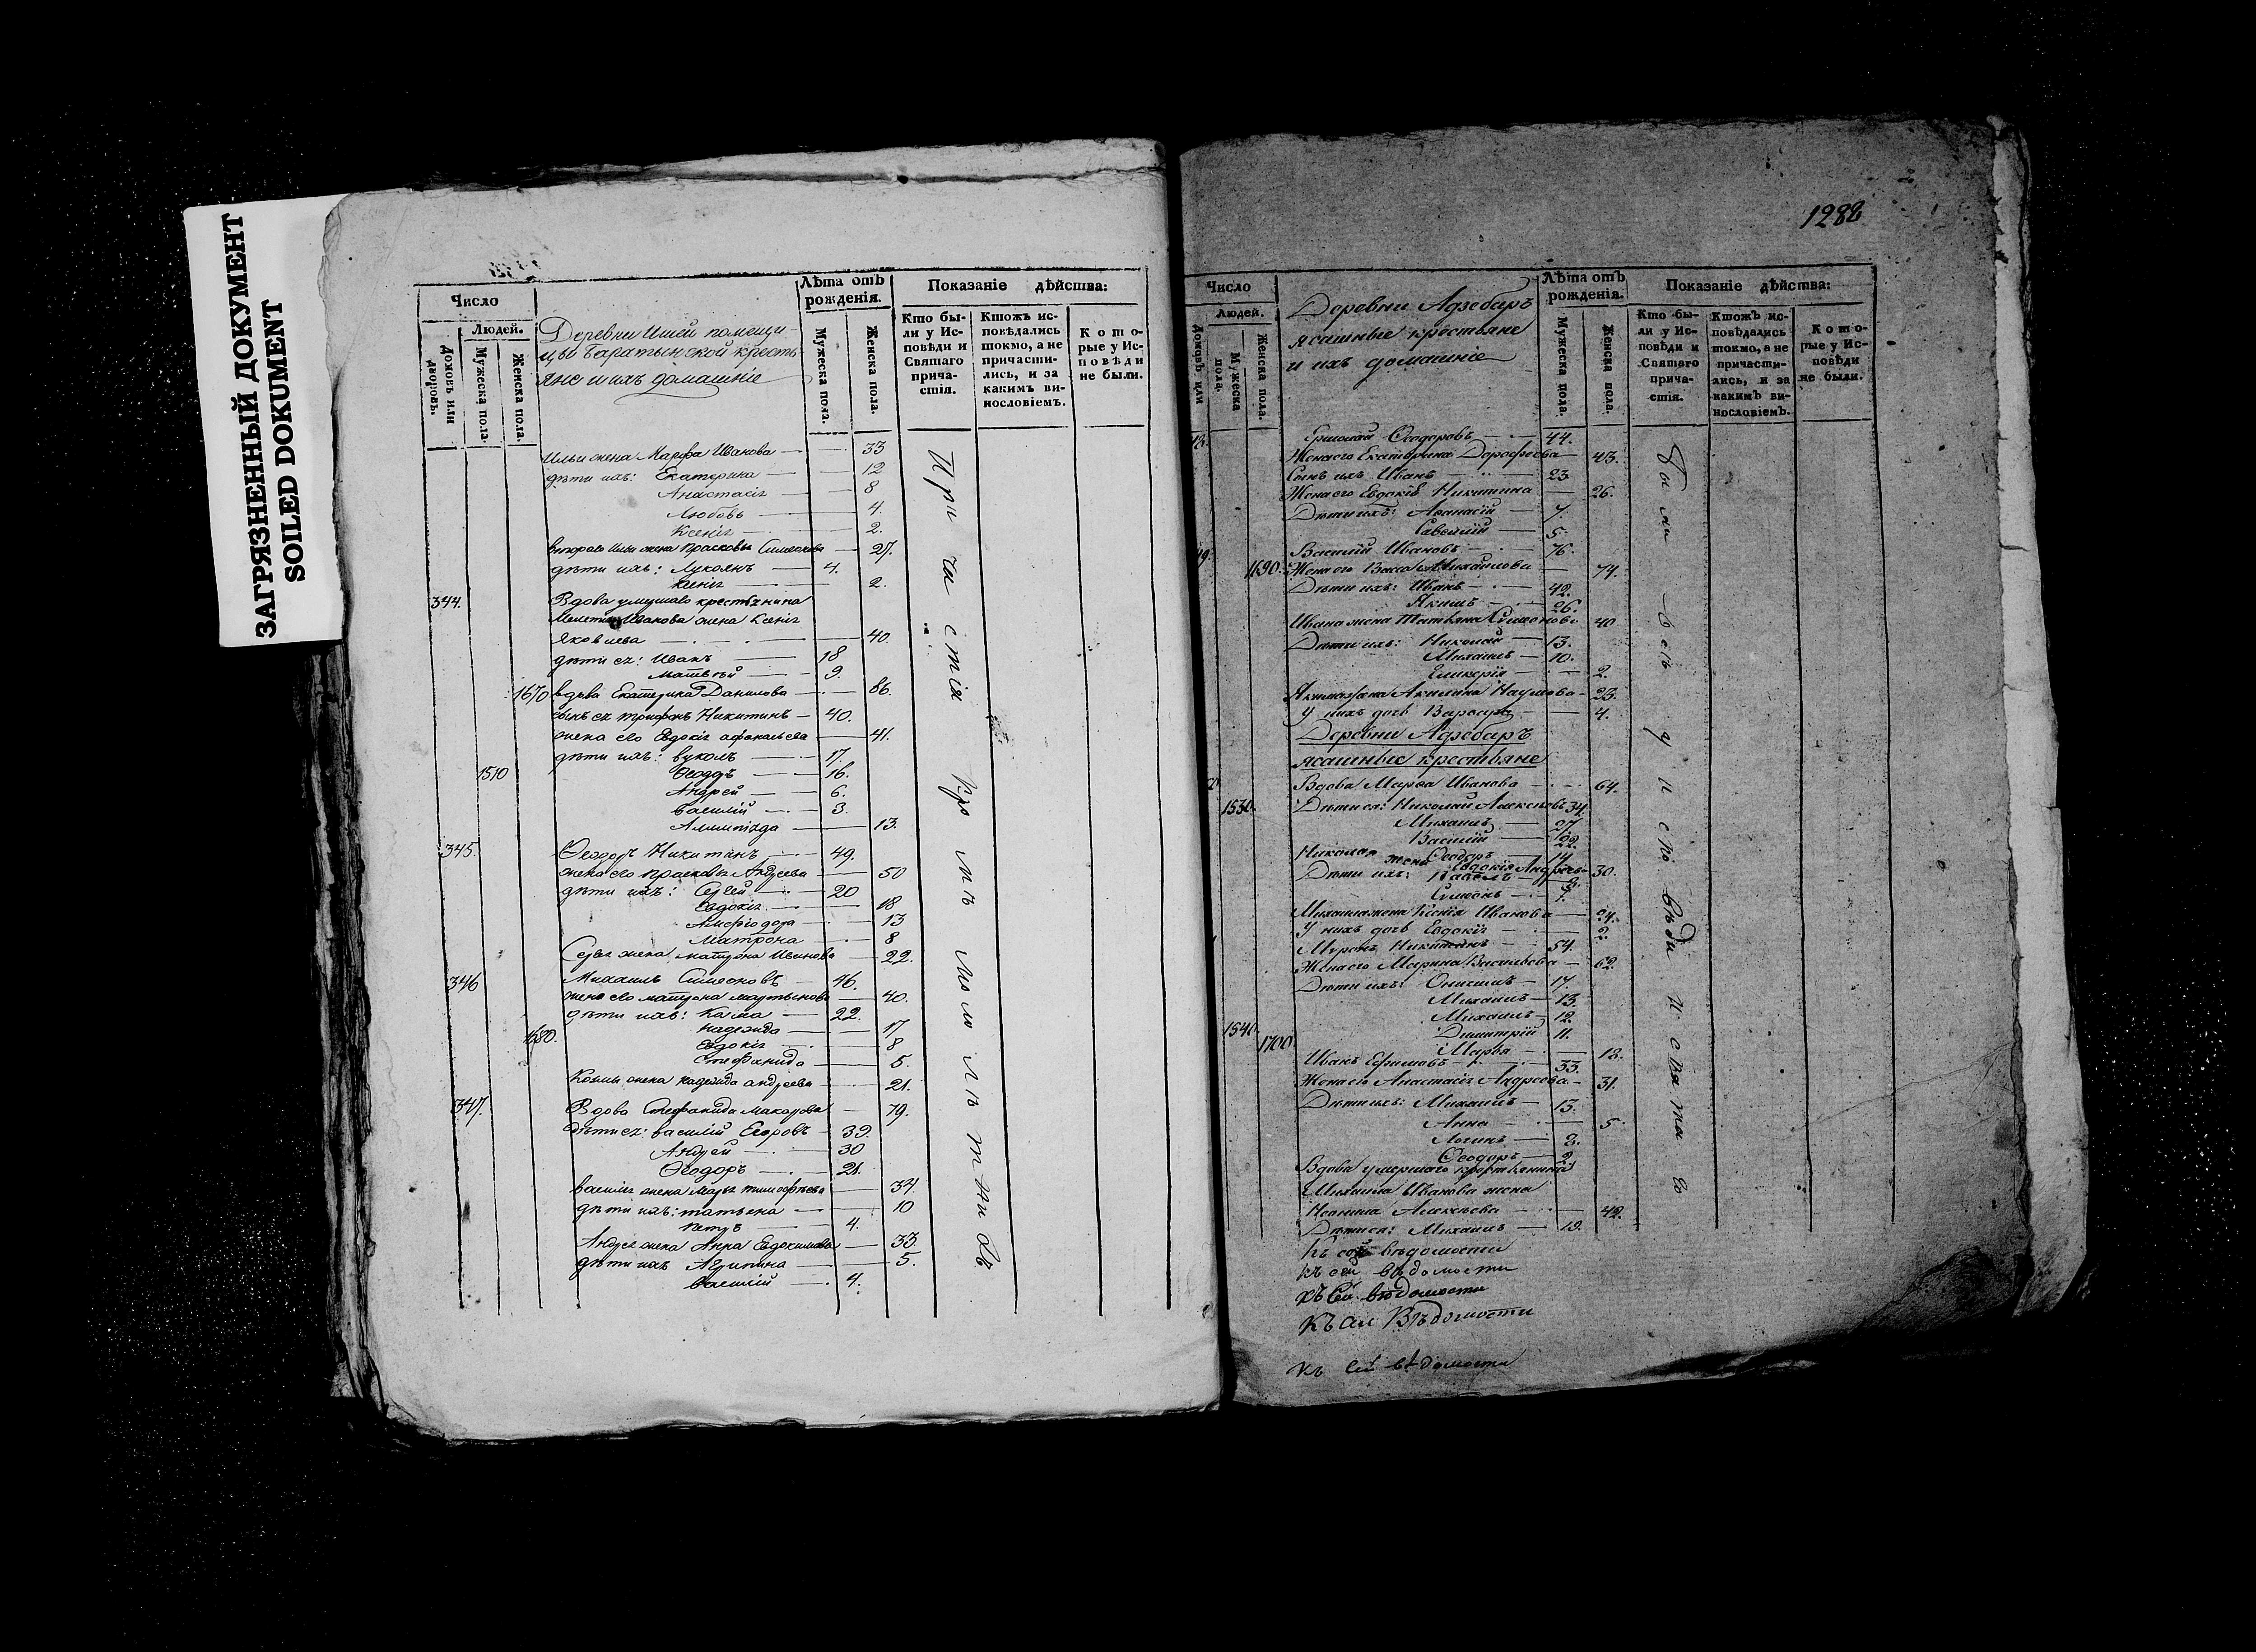 ЗАГРЯЗНЕННЫЙ ДОКУМЕНТ
SOILED DOKUMENT
Число
Людей.
Домовъ или дворовъ.
Мужеска пола.
Женска пола.
Деревни Ишей помещи-
цы Баратынской кресть-
яне и ихъ домашніе
Лѣта отъ рожденія.
Мужеска пола.
Женска пола.
Показаніе дѣйства:
Кто бы-
ли у Ис-
повѣди и
Святаго
прича-
стія.
Ктожъ ис-
повѣдались
токмо, а не
причасти-
лись, и за
какимъ ви-
нословіемъ.
Кото-
рые у Ис-
повѣди
не были.
Ильи жена Марфа Иванова 33
дѣти ихъ: Екатерина 12
Анастасія 8
Любовь 4.
Ксенія 2.
втораго Ильи жена Прасковья Симеонова 27.
дѣти ихъ: Лукоянъ 4.
Ксенія 2.
344. Вдова умершаго крестьянина
Иванова жена Ксенія
Яковлева 40.
дѣти ея: Иванъ 18
Матвѣй 9.
1670 вдова Екатерина Данилова 86.
сынъ ея Трифонъ Никитинъ 40.
жена его Евдокія Афонасьева 41.
дѣти ихъ: Вуколъ 17.
1510 Ѳеодоръ 16.
Андрей 6.
Василій 3.
Алимпіада 13.
345. Ѳеодоръ Никитинъ 49.
жена его Прасковья Андреева 50
дѣти ихъ: Сергей 20
Евдокія 18
13
Матрона 8
Сергея жена Матрона Иванова 22.
346 Михаилъ Симеоновъ 46.
жена его Матрона Мартынова 40.
дѣти ихъ: Казма 22.
1680. Надежда 17
Евдокія 8
Стефанида 5.
Козмы жена Надежда Андреева 21.
347. Вдова Стефанида Макарова 79.
дѣти ея: Василій Егоровъ 39.
Андрей 30
Ѳеодоръ 21.
Василья жена Марья Тимофѣева 34.
дѣти ихъ: Татьяна 10
Петръ 4.
Андрея жена Анна Евдокимова 33.
дѣти ихъ Агрипина 5.
Василій 4.
Причастія
1288
Число
Людей.
Домовъ или
Мужеска пола.
Женска пола.
Деревни Адзебаръ
ясашные крестьяне
и ихъ домашніе
Лѣта отъ рожденія.
Мужеска пола.
Женска пола.
Показаніе дѣйства:
Кто бы-
ли у Ис-
повѣди и
Святаго
прича-
стія.
Ктожъ ис-
повѣдались
токмо, а не
причасти-
лись, и за
какимъ ви-
нословіемъ.
Кото-
рые у Ис-
повѣди
не были.
Ермолай Ѳеодоровъ 44.
Жена его Екатерина Дорофеева 43.
Сынъ ихъ Иванъ 23
Жена его Евдокія Никитина 26.
Дѣти ихъ: Афанасій 7.
Савелій 5.
Василій Ивановъ 76.
1690. Жена его Васса Михайлова 74.
Дѣти ихъ: Иванъ 42.
Якимъ 26.
Ивана жена Татьяна Симонова 40
Дѣти ихъ: Николай 13.
Михаилъ 10.
Гликерія 2.
Якима жена Акилина Наумова 23.
У нихъ дочь Варвара 4.
Деревни Адзебаръ
ясашные крестьяне
Вдова Марфа Иванова 64.
1530. Дѣти ея: Николай Алексѣевъ 34.
Михаилъ 27
Василій 22.
Ѳеодоръ 14
Николая жена Евдокія Андреева 30.
Дѣти ихъ: Павелъ
Симеонъ
Михаила жена Ксенія Иванова 24.
У нихъ дочь Евдокія 2.
Миронъ Никитинъ 54.
Жена его Марина Васильева 62.
Дѣти ихъ: Онисимъ 17.
Михаилъ 13.
Михаилъ 12.
1540. Димитрій 11.
1700 Марья 12.
Иванъ Ефимовъ 33.
Жена его Анастасія Андреева 31.
Дѣти ихъ: Михаилъ 13.
Анна 5
Логинъ
Ѳеодоръ 2
Вдова умершаго крестьянина
Михаила Иванова жена
Алексѣева 42.
Дѣти ея: Михаилъ 19.
Были всѣ у исповѣди и святаго
къ сей вѣдомости
къ сей вѣдомости
къ сей вѣдомости
къ сей вѣдомости
къ сей вѣдомости